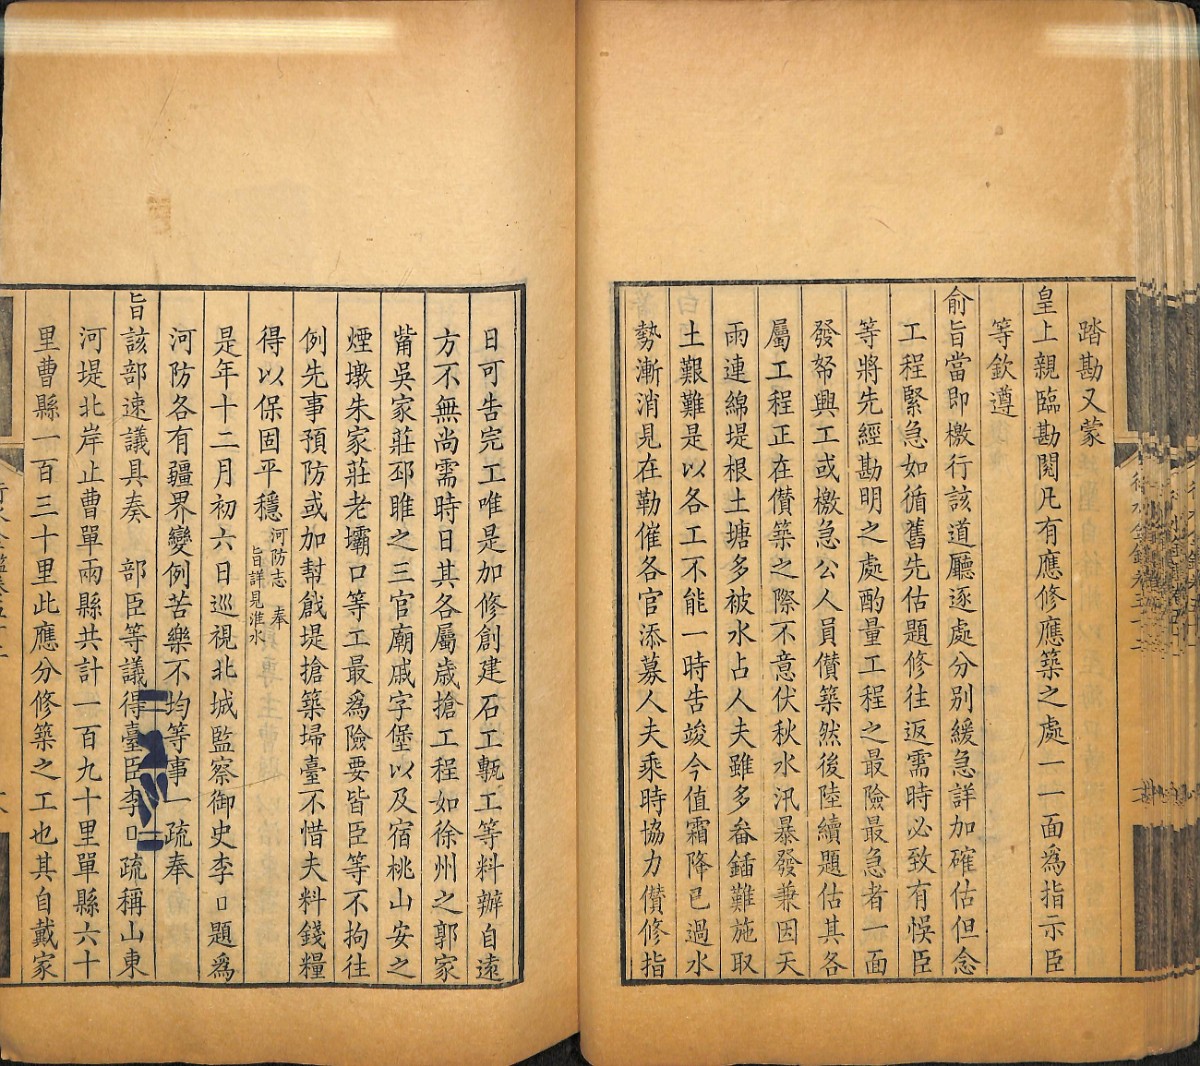 踏勘又蒙
皇上親臨勘閱凡有應修應築之處一一面爲指示臣
等欽遵
俞旨當即檄行該道廳逐處分别緩急詳加確估但念
工程緊急如循舊先估題修往返需時必致有悞臣
等將先經勘明之處酌量工程之最險最急者一面
發帑興工或檄急公人員儧築然後陸續題估其各
屬工程正在儧築之際不意伏秋水汛暴發兼因天
雨連綿堤根土塘多被水占人夫雖多畚鍤難施取
土艱難是以各工不能一時告竣今值霜降已過水
勢漸消見在勒催各官添募人夫乘時協力儧修指
日可告完工唯是加修創建石工甎工等料辦自遠
方不無尚需時日其各屬歲搶工程如徐州之郭家
觜吳家莊邳睢之三官廟戚字堡以及宿桃山安之
煙墩朱家莊老壩口等工最爲險要皆臣等不拘往
例先事預防或加幫戧堤搶築埽臺不惜夫料錢糧
得以保固平穩河防志 奉
旨詳見淮水
是年十二月初六日巡視北城監察御史李口題爲
河防各有疆界變例苦樂不均等事一疏奉
旨該部速議具奏 部臣等議得臺臣李口疏稱山東
河堤北岸止曹單兩縣共計一百九十里單縣六十
里曹縣一百三十里此應分修築之工也其自戴家